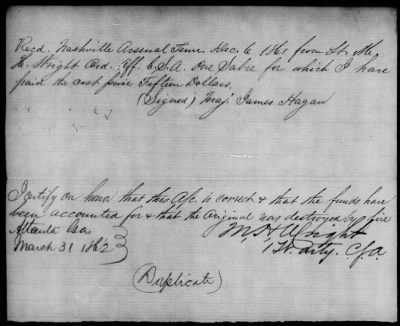 Recd. Nashville Arsenal Tenn. Dec. 6 1861 from Lt. M.
H. Wright Ord. Off. C.S.A. One Sabre for which I have
paid the cost price Fifteen Dollars.
(Signed) Maj. James Hagan
I certify on honor that this A/c is correct & that the funds have
been accounted for & that the Original was destroyed by fire
Atlanta Ga
March 31 1862
M. H. Wright
1 Lt. Arty. C.S.A.
(Duplicate)